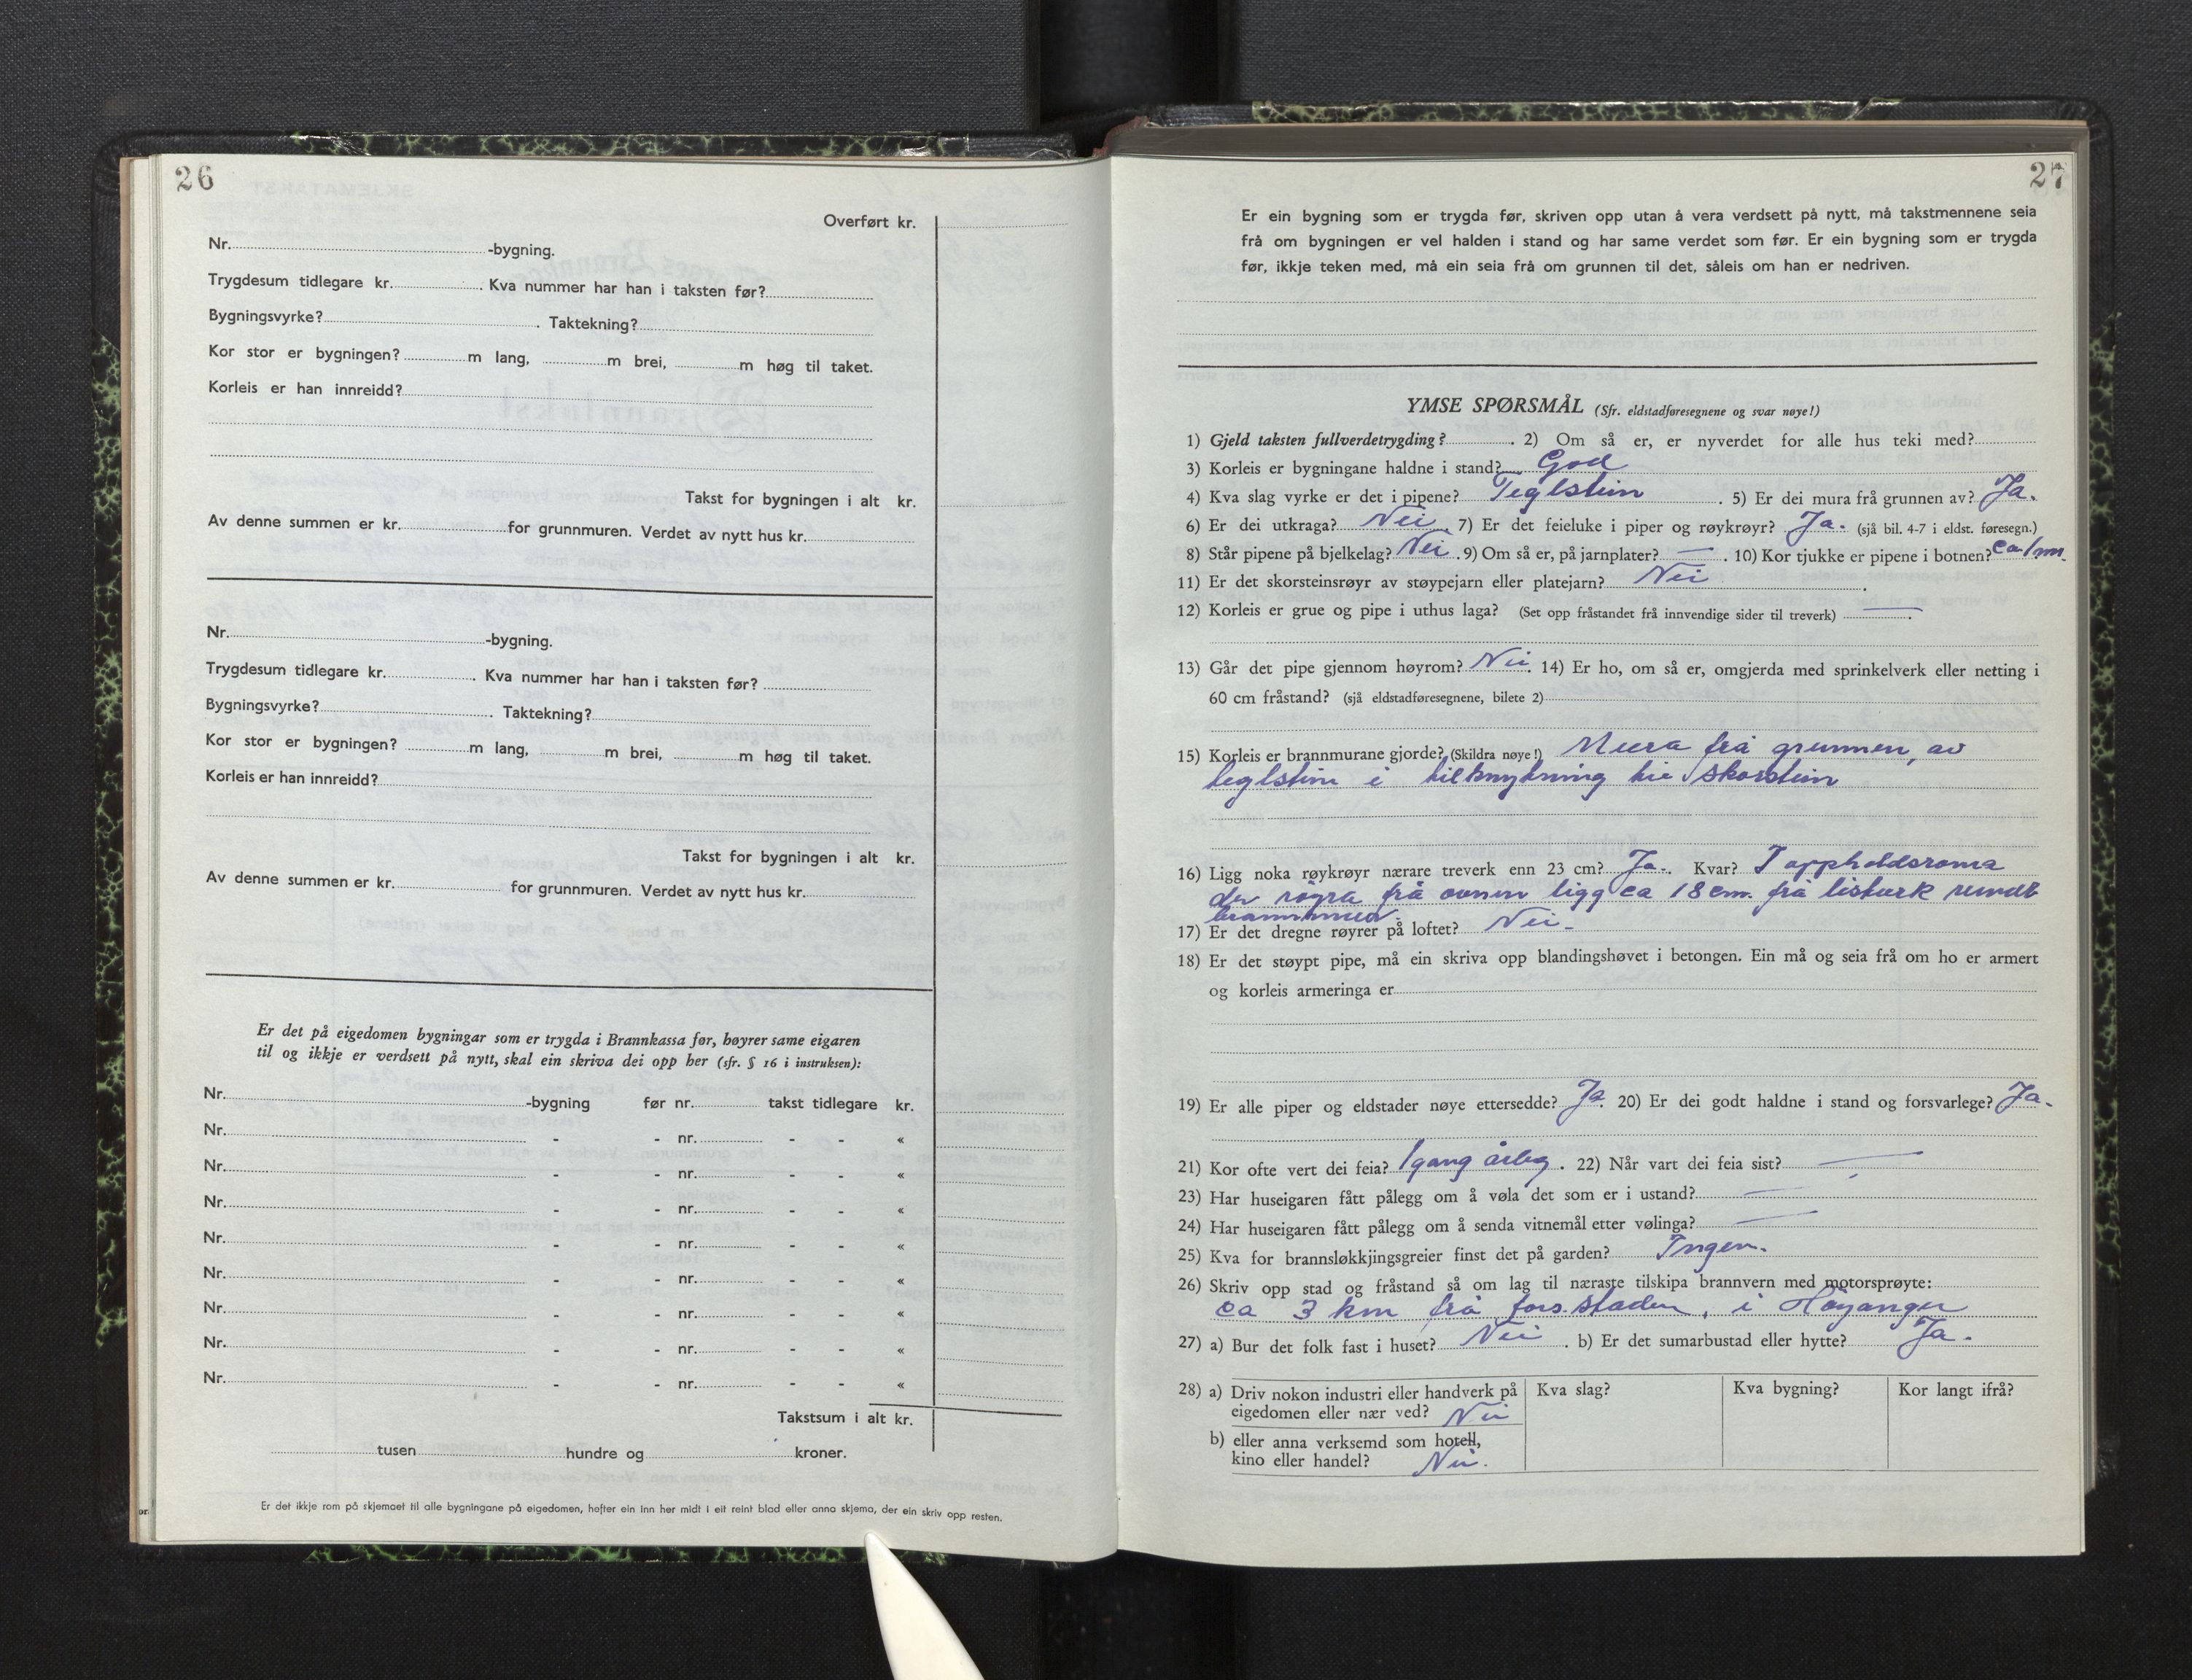 26
Overført kr.
Nr. -bygning.
Trygdesum tidlegare kr. . Kva nummer har han i taksten før?
Bygningsvyrke? . Taktekning?
Kor stor er bygningen? m lang, m brei, m høg til taket.
Korleis er han innreidd?
Takst for bygningen i alt kr.
Av denne summen er kr. for grunnmuren. Verdet av nytt hus kr.
Nr. -bygning.
Trygdesum tidlegare kr. . Kva nummer har han i taksten før?
Bygningsvyrke? . Taktekning?
Kor stor er bygningen? m lang, m brei, m høg til taket.
Korleis er han innreidd?
Takst for bygningen i alt kr.
Av denne summen er kr. for grunnmuren. Verdet av nytt hus kr.
Er det på eigedomen bygningar som er trygda i Brannkassa før, høyrer same eigaren
til og ikkje er verdsett på nytt, skal ein skriva dei opp her (sfr. § 16 i instruksen):
Nr. -bygning før nr. takst tidlegare kr.
Nr. - - nr. - - «
Nr. - - nr. - - «
Nr. - - nr. - - «
Nr. - - nr. - - «
Nr. - - nr. - - «
Nr. - - nr. - - «
Nr. - - nr. - - «
Nr. - - nr. - - «
Takstsum i alt kr.
tusen hundre og kroner.
Er det ikkje rom på skjemaet til alle bygningane på eigedomen, hefter ein inn her midt i eit reint blad eller anna skjema, der ein skriv opp resten.
27
Er ein bygning som er trygda før, skriven opp utan å vera verdsett på nytt, må takstmennene seia
frå om bygningen er vel halden i stand og har same verdet som før. Er ein bygning som er trygda
før, ikkje teken med, må ein seia frå om grunnen til det, såleis om han er nedriven.
YMSE SPØRSMÅL (Sfr. eldstadføresegnene og svar nøye!)
1) Gjeld taksten fullverdetrygding? . 2) Om så er, er nyverdet for alle hus teki med?
3) Korleis er bygningane haldne i stand? God
4) Kva slag vyrke er det i pipene? Teglstein . 5) Er dei mura frå grunnen av? Ja.
6) Er dei utkraga? Nei . 7) Er det feieluke i piper og røykrøyr? Ja. (sjå bil. 4-7 i eldst. føresegn.)
8) Står pipene på bjelkelag? Nei . 9) Om så er, på jarnplater? — . 10) Kor tjukke er pipene i botnen? ca 1 m.
11) Er det skorsteinsrøyr av støypejarn eller platejarn? Nei .
12) Korleis er grue og pipe i uthus laga? (Set opp fråstandet frå innvendige sider til treverk) — .
13) Går det pipe gjennom høyrom? Nei. 14) Er ho, om så er, omgjerda med sprinkelverk eller netting i
60 cm fråstand? (sjå eldstadføresegnene, bilete 2)
15) Korleis er brannmurane gjorde? (Skildra nøye!) Mura frå grunnen, av
teglstein i tilknytning til skorstein
16) Ligg noka røykrøyr nærare treverk enn 23 cm? Ja. Kvar? I oppholdsroma
der røyra frå ovnen ligg ca 18 cm. frå listverk rundt
brannmur.
17) Er det dregne røyrer på loftet? Nei.
18) Er det støypt pipe, må ein skriva opp blandingshøvet i betongen. Ein må og seia frå om ho er armert
og korleis armeringa er
19) Er alle piper og eldstader nøye ettersedde? Ja. 20) Er dei godt haldne i stand og forsvarlege? Ja.
21) Kor ofte vert dei feia? 1 gang årleg . 22) Når vart dei feia sist? —
23) Har huseigaren fått pålegg om å vøla det som er i ustand? —
24) Har huseigaren fått pålegg om å senda vitnemål etter vølinga? —
25) Kva for brannsløkkjingsgreier finst det på garden? Ingen.
26) Skriv opp stad og fråstand så om lag til næraste tilskipa brannvern med motorsprøyte:
ca 3 km frå fors.staden, i Høyanger
27) a) Bur det folk fast i huset? Nei . b) Er det sumarbustad eller hytte? Ja.
28) a) Driv nokon industri eller handverk på Kva slag? Kva bygning? Kor langt ifrå?
eigedomen eller nær ved? Nei
b) eller anna verksemd som hotell,
kino eller handel? Nei.